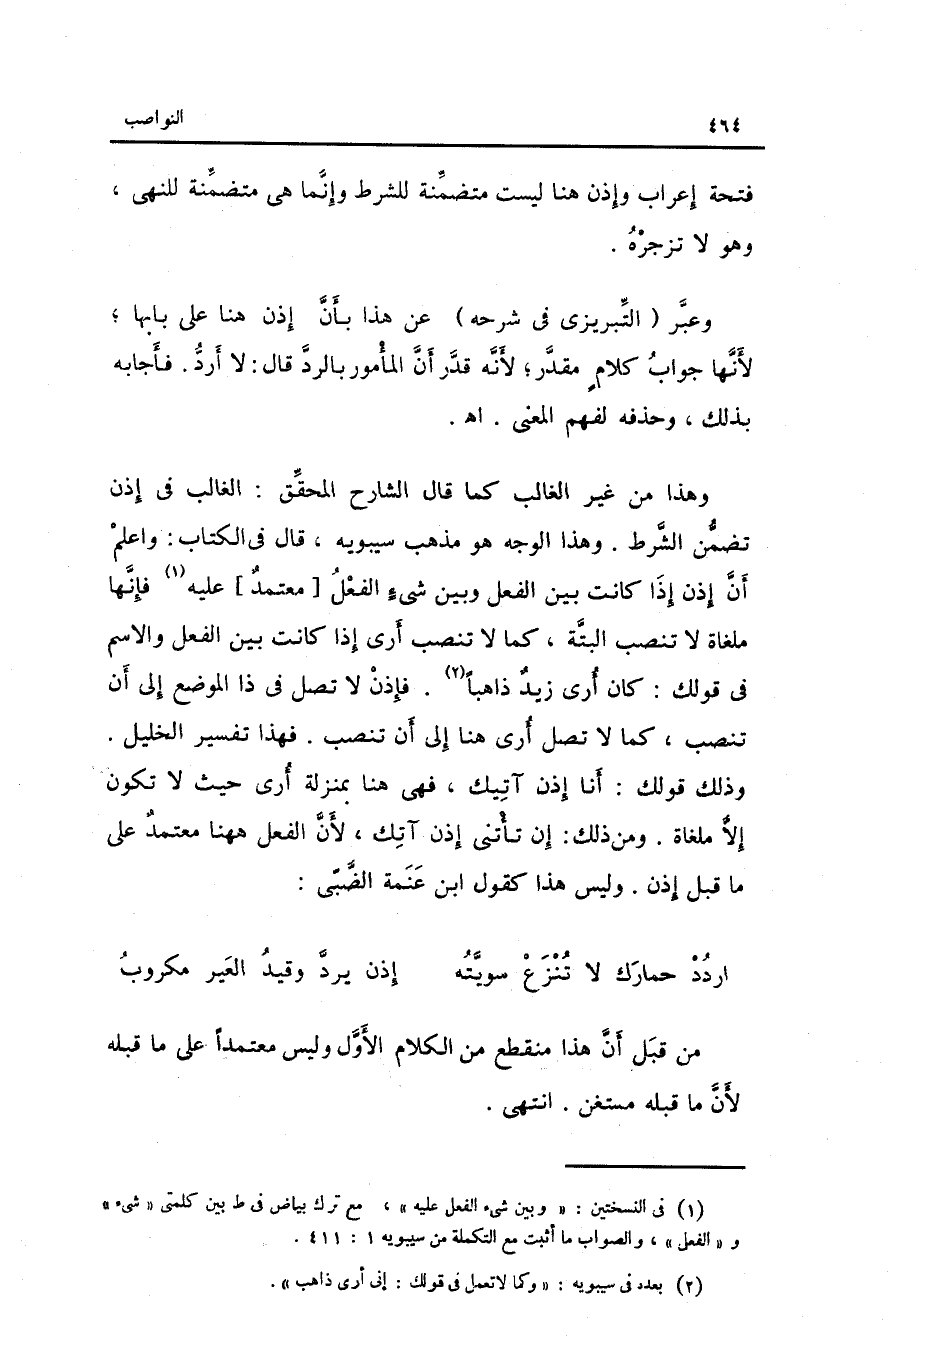 ٤٦٤
النواصب
فتحة إعراب وإذن هنا ليست متضمِّنة للشرط وإنَّما هى متضمِّنة للنهى ،
وهو لا تزجرْهُ .
وعبَّر ( التِّبريزى فى شرحه ) عن هذا بأَنَّ إذن هنا على بابها ؛
لأَنَّها جوابُ كلامٍ مقدَّر ؛ لأَنَّه قدَّر أَنَّ المأْمور بالردَّ قال : لا أَردُّ . فأَجابه
بذلك ، وحذفه لفهم المعْنى . اهـ .
وهذا من غير الغالب كما قال الشارح المحقِّق : الغالب فى إِذن
تضمُّن الشَّرط . وهذا الوجه هو مذهب سيبويه ، قال فى الكتاب : واعلمْ
أَنَّ إِذن إِذَا كانت بين الفعل وبين شىءٍ الفعْلُ [ معتمدٌ ] عليه(١) فإِنَّها
ملغاة لا تنصب البتَّة ، كما لا تنصب أَرى إِذا كانت بين الفعل والاسم
فى قولك : كان أُرى زيدٌ ذاهباً(٢) . فإِذنْ لا تصل فى ذا الموضع إِلى أَن
تنصب ، كما لا تصل أُرى هنا إِلى أَن تنصب . فهذا تفسير الخليل .
وذلك قولك : أَنا إِذن آتِيك ، فهى هنا بمنزلة أُرى حيث لا تكون
إِلاَّ ملغاة . ومن ذلك : إِن تأْتنى إِذن آتِك ، لأَنَّ الفعل ههنا معتمدٌ على
ما قبل إِذن . وليس هذا كقول ابن عَنَمة الضَّبّى :
اردُدْ حمارَك لا تُنْزَعْ سويَّتُه إذن يردَّ وقيدُ العَير مكروبُ
من قبَل أَنَّ هذا منقطع من الكلام الأَوَّل وليس معتمداً على ما قبله
لأَنَّ ما قبله مستغن . انتهى .
(١) فى النسختين : « وبين شىء الفعل عليه » ، مع ترك بياض فى ط بين كلمتى « شىء »
و « الفعل » ، والصواب ما أثبت مع التكملة من سيبويه ١ : ٤١١ .
(٢) بعده فى سيبويه : « وكما لاتعمل فى قولك : إنى أرى ذاهب » .